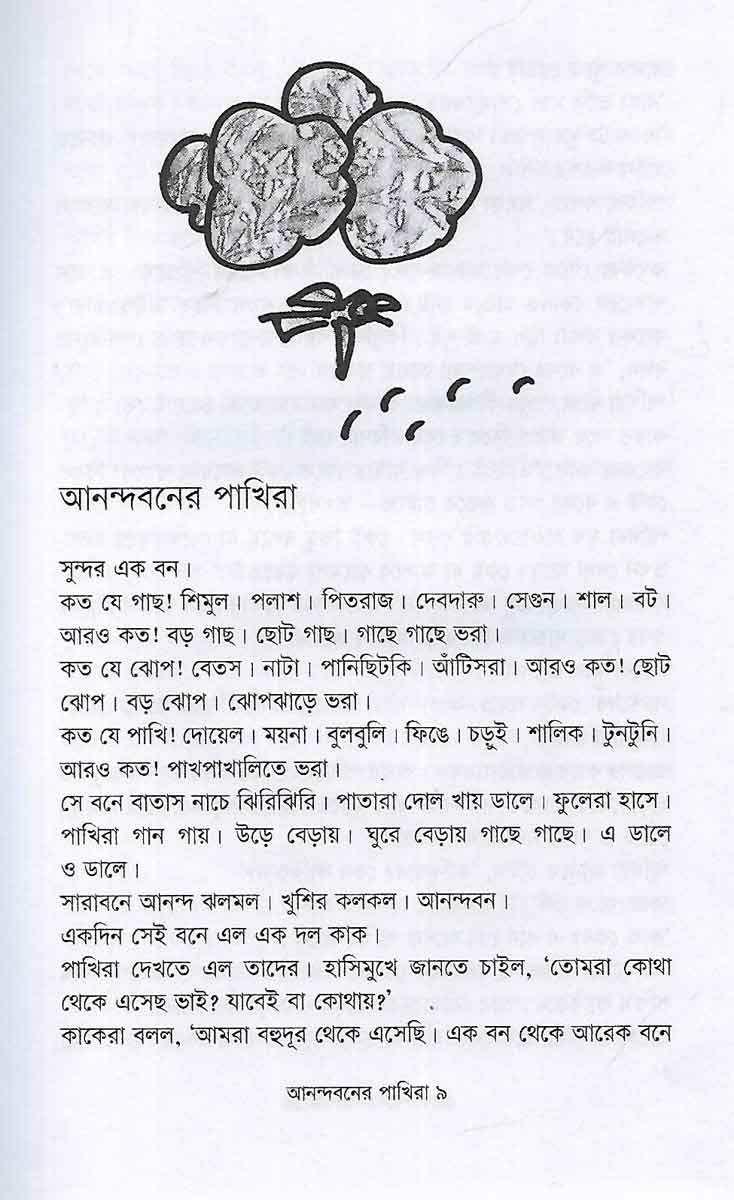 আনন্দবনের পাখিরা
সুন্দর এক বন।
কত যে গাছ! শিমুল। পলাশ। পিতরাজ। দেবদারু। সেগুন। শাল। বট।
আরও কত! বড় গাছ। ছোট গাছ। গাছে গাছে ভরা।
কত যে ঝোপ! বেতস। নাটা। পানিছিটকি। আঁটিসরা। আরও কত! ছোট
ঝোপ। বড় ঝোপ। ঝোপঝাড়ে ভরা।
কত যে পাখি! দোয়েল। ময়না। বুলবুলি। ফিঙে। চড়ুই। শালিক। টুনটুনি।
আরও কত! পাখপাখালিতে ভরা।
সে বনে বাতাস নাচে ঝিরিঝিরি। পাতারা দোল খায় ডালে। ফুলেরা হাসে।
পাখিরা গান গায়। উড়ে বেড়ায়। ঘুরে বেড়ায় গাছে গাছে। এ ডালে
ও ডালে।
সারাবনে আনন্দ ঝলমল। খুশির কলকল। আনন্দবন।
একদিন সেই বনে এল এক দল কাক।
পাখিরা দেখতে এল তাদের। হাসিমুখে জানতে চাইল, ‘তোমরা কোথা
থেকে এসেছ ভাই? যাবেই বা কোথায়?’
কাকেরা বলল, ‘আমরা বহুদূর থেকে এসেছি। এক বন থেকে আরেক বনে
আনন্দবনের পাখিরা ৯